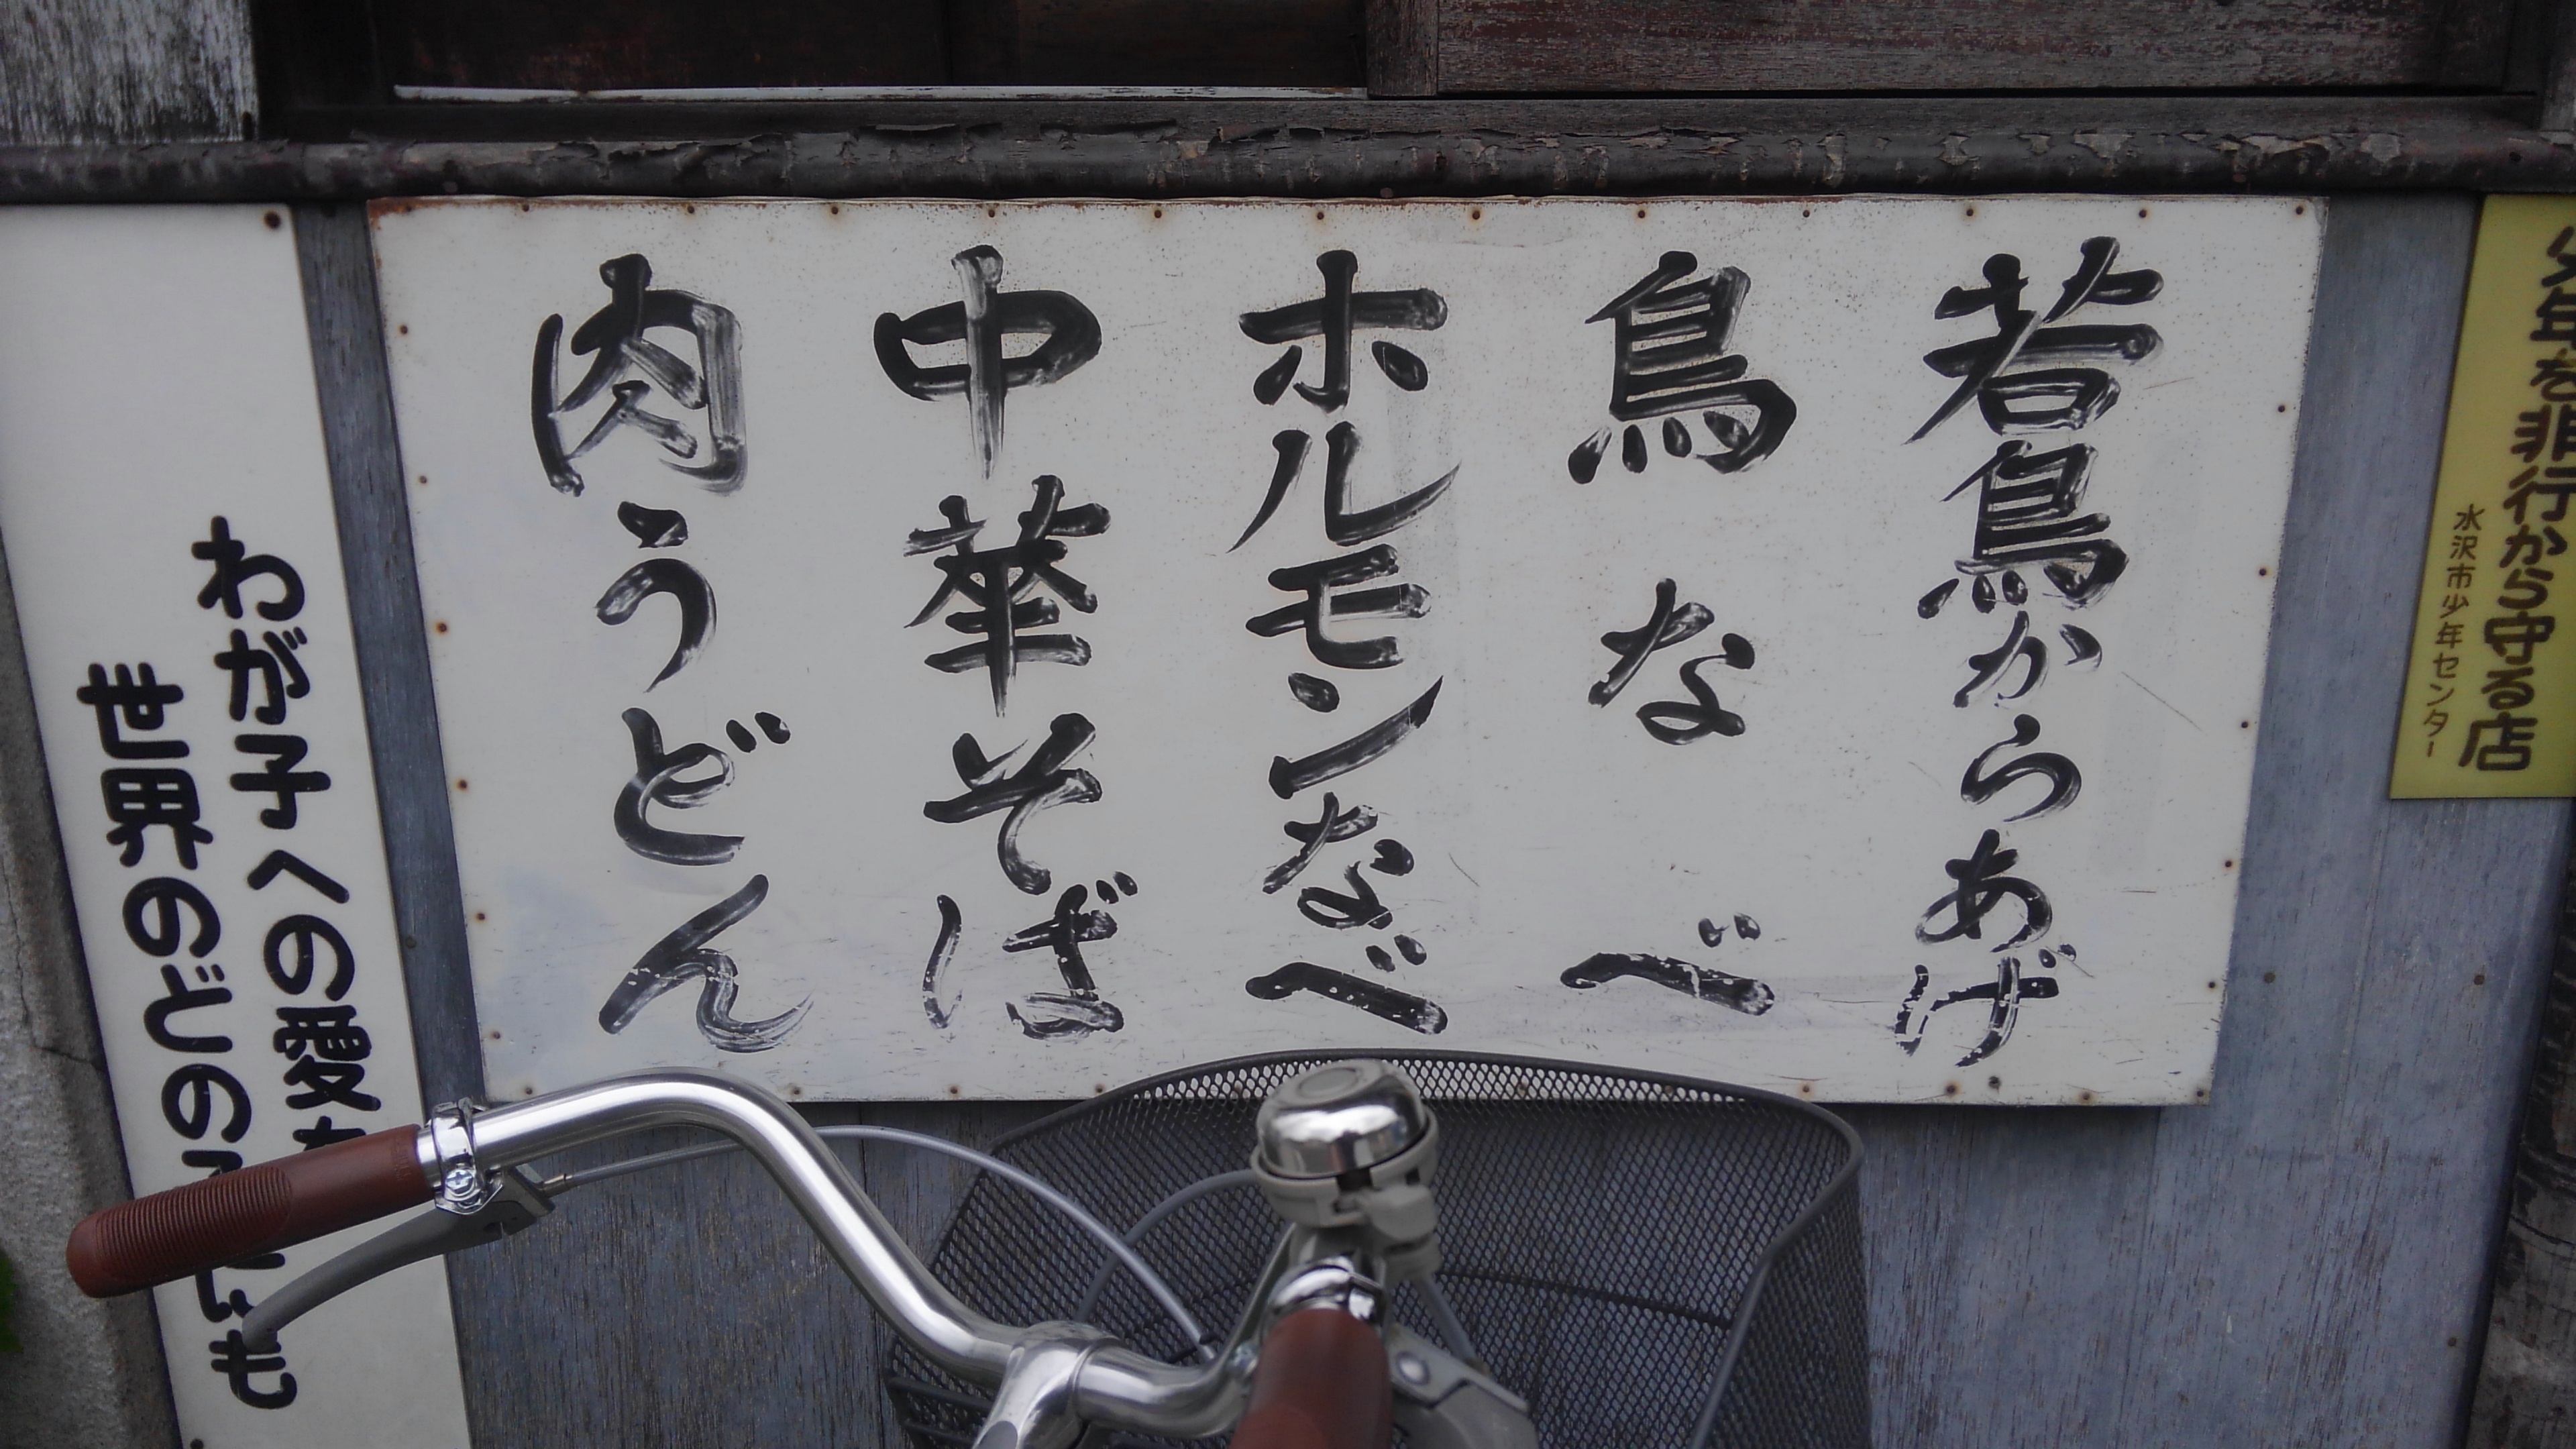 少年を非行から守る店
水沢市少年センター
若鳥からあげ
鳥なべ
ホルモンなべ
中華そば
肉うどん
わが子への愛を
世界のどの子にも